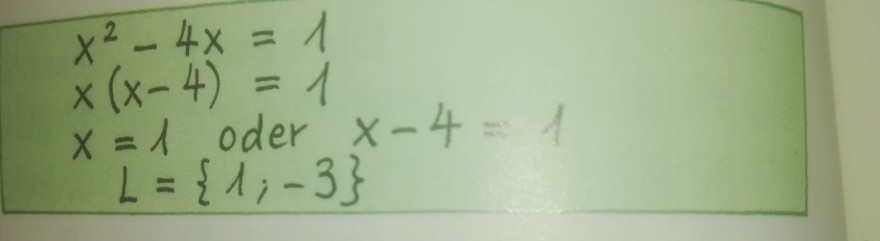 x² - 4x = 1
x(x-4) = 1
x = 1 oder x - 4 = 1
L = {1; -3}